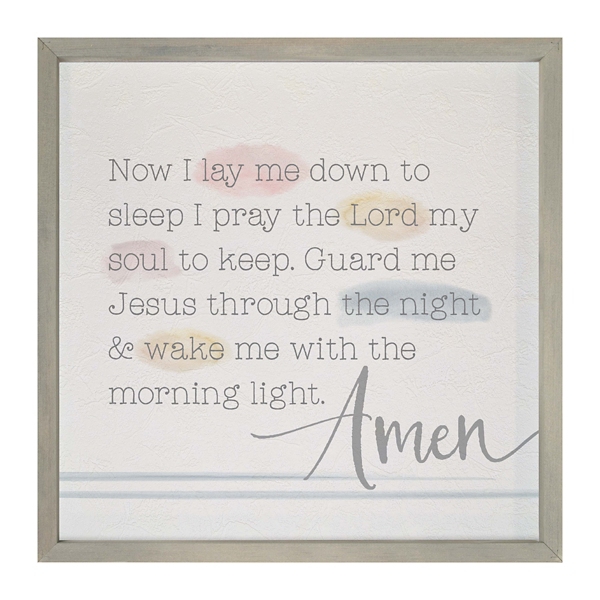 Now I lay me down to
sleep I pray the Lord my
soul to keep. Guard me
Jesus through the night
& wake me with the
morning light.
Amen